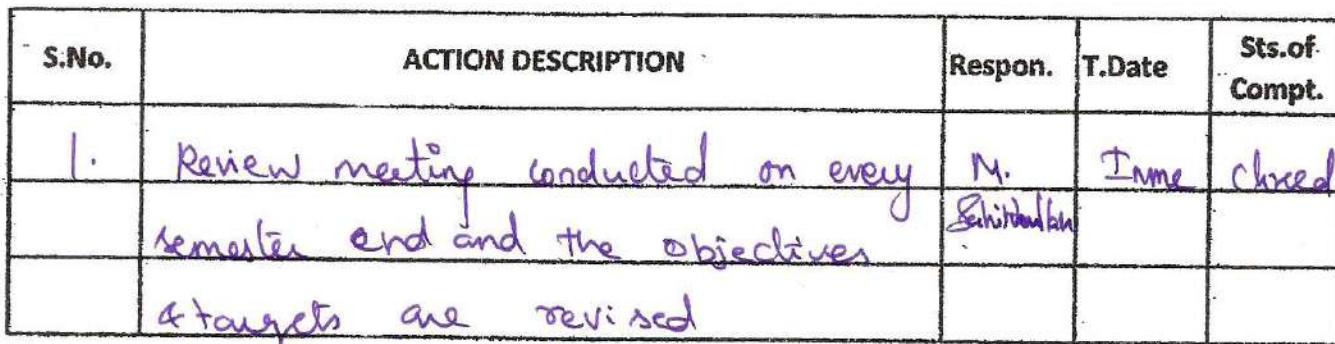 S.No. ACTION DESCRIPTION Respon. T.Date Sts.of Compt.
1. Review meeting conducted on every M. Imme closed
semester end and the objectives
& targets are revised